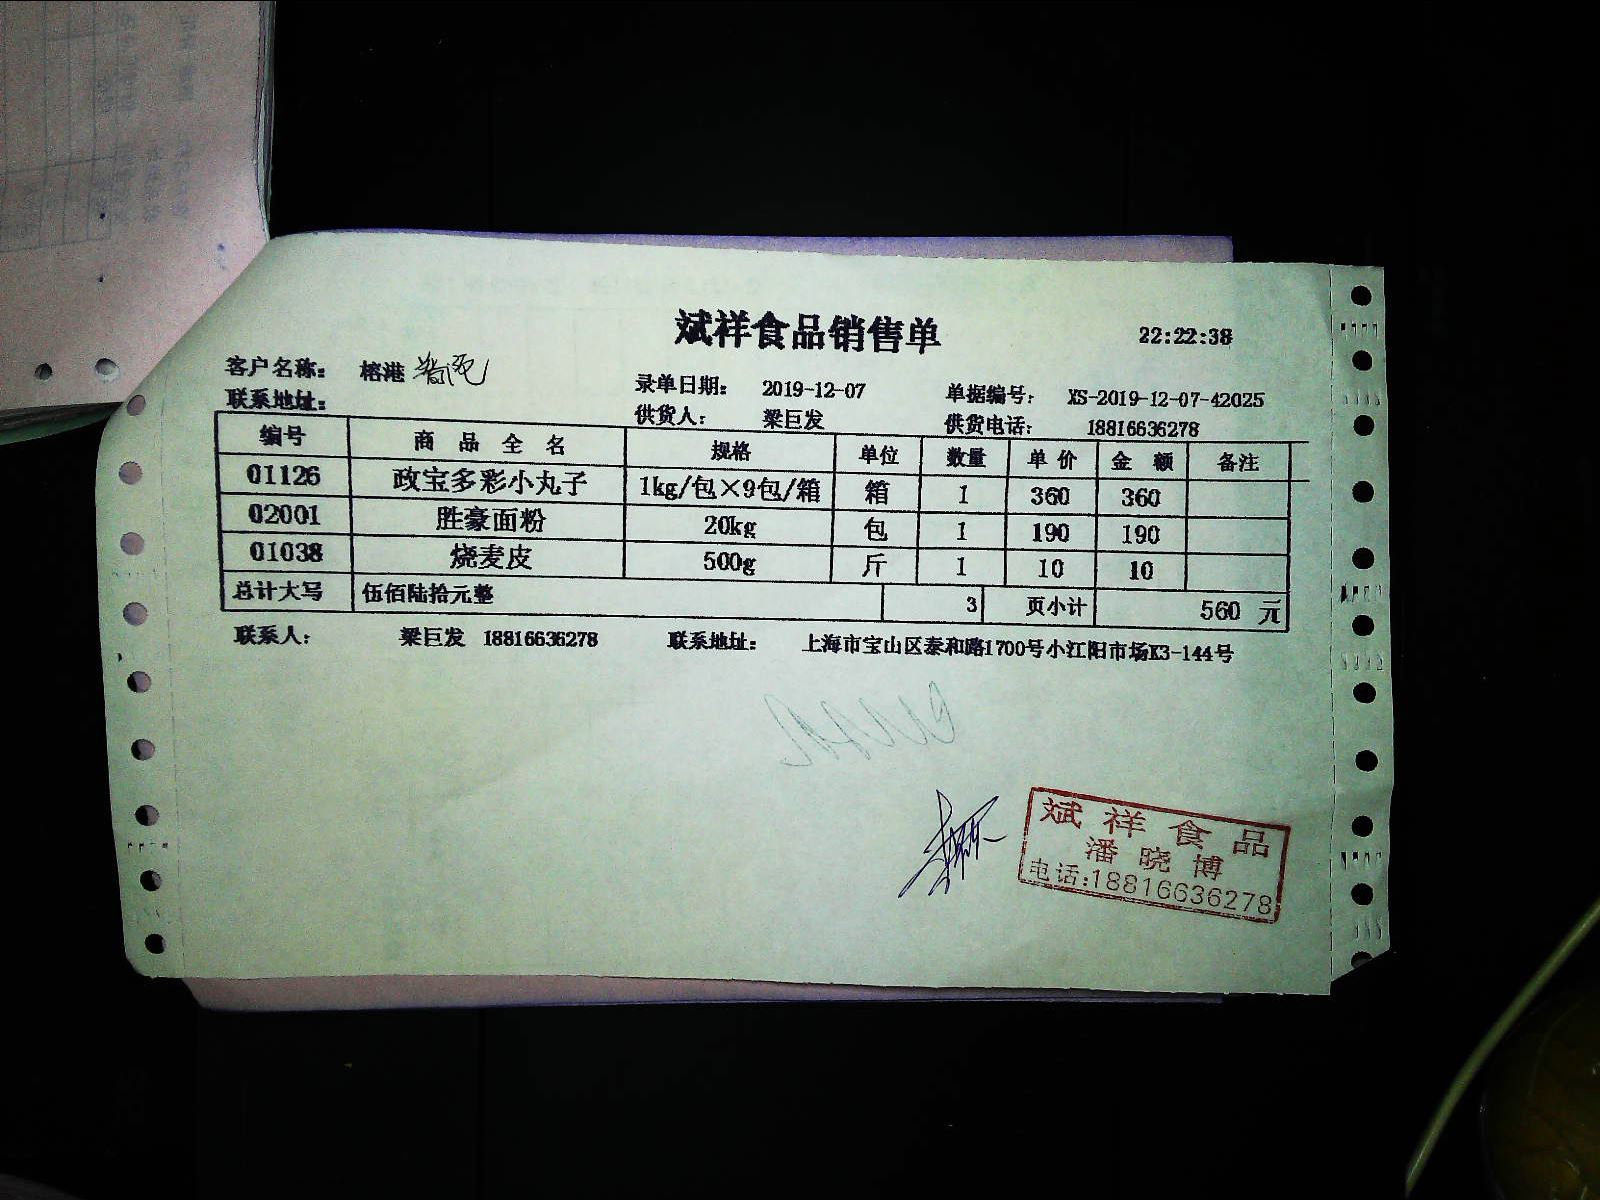 斌祥食品销售单 22:22:38
客户名称： 榕港 录单日期： 2019-12-07 单据编号： XS-2019-12-07-42025
联系地址： 供货人： 梁巨发 供货电话： 18816636278
编号 商 品 全 名 规格 单位 数量 单 价 金 额 备注
01126 政宝多彩小丸子 1kg/包×9包/箱 箱 1 360 360
02001 胜豪面粉 20kg 包 1 190 190
01038 烧麦皮 500g 斤 1 10 10
总计大写 伍佰陆拾元整 3 页小计 560 元
联系人： 梁巨发 18816636278 联系地址： 上海市宝山区泰和路1700号小江阳市场K3-144号
斌祥食品
潘晓博
电话:18816636278